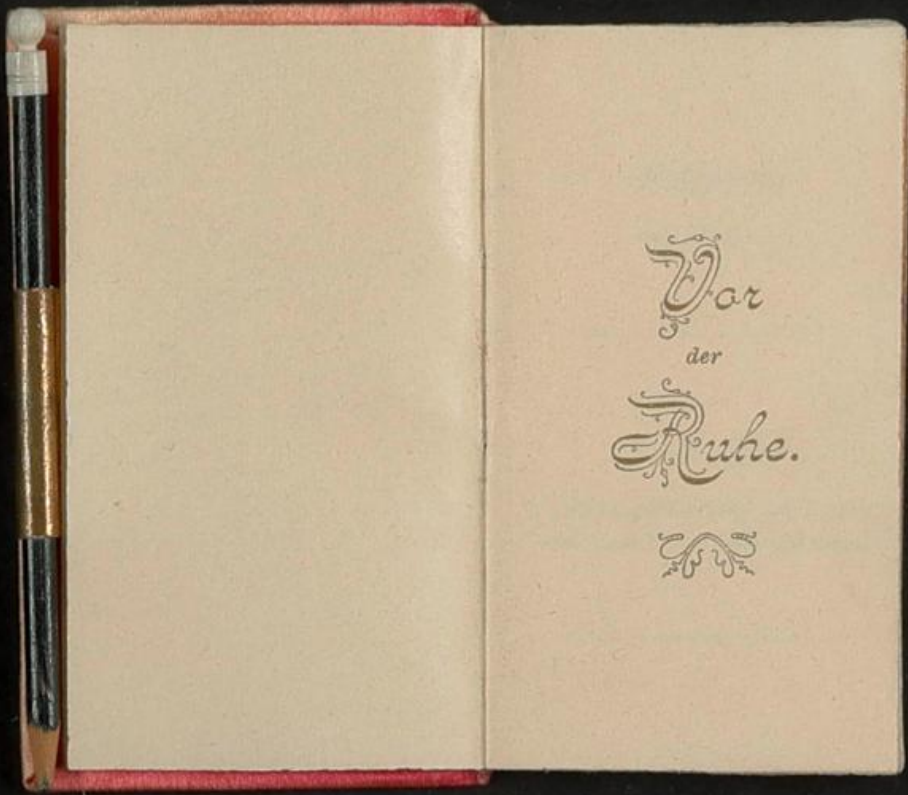 Vor
der
Ruhe.